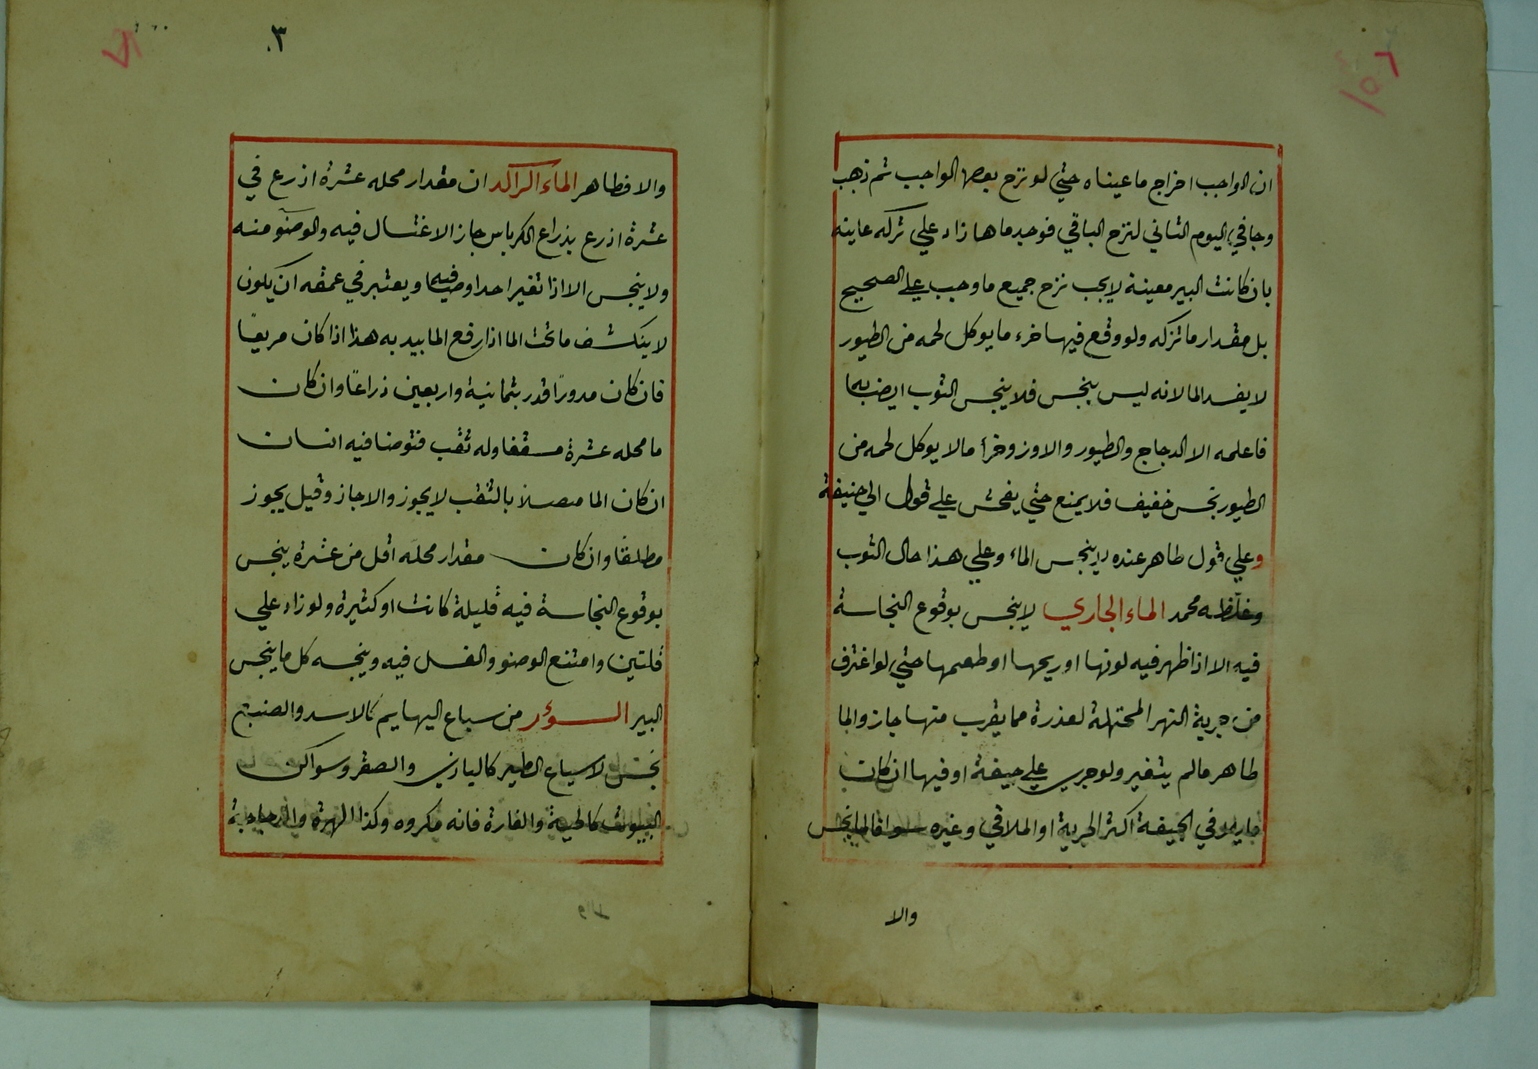 ان الواجب اخراج ما عيناه حتي لو نزح بعض الواجب ثم ذهب
وجا في اليوم الثاني لنزح الباقي فوجد ماها زاد علي تركه عاينه
بان كانت البير معينة لا يجب نزح جميع ما وجب علي الصحيح
بل مقدار ما تركه ولو وقع فيها خرء ما يوكل لحمه من الطيور
لا يفسد الما لانه ليس بنجس فلا ينجس الثوب ايضا
فاعلمه الا الدجاج والطيور والاوز وخرأ مالا يوكل لحمه من
الطيور نجس خفيف فلا يمنع حتي يفحش علي قول ابي حنيفة
وعلي قول طاهر عنده لا ينجس الماء وعلي هذا حال الثوب
وغلظه محمد الماء الجاري لا ينجس بوقوع النجاسة
فيه الا اذا ظهر فيه لونها او ريحها او طعمها حتي لو اغترف
من جرية النهر المحتملة لعذرة مما يقرب منها جاز والما
طاهر مالم يتغير ولو جري علي جيفة او فيها ان كان
في الجيفة اكثر الجرية او الملاقي وغيره سوا فالما نجس
والا
٣٠
والا فطاهر الماء الراكد ان مقدار محله عشرة اذرع في
عشرة اذرع بذراع الكرباس جاز الاغتسال فيه والوضؤ منه
ولا ينجس الا اذا تغير احد اوصافيها ويعتبر في عمقه ان يكون
لا ينكشف ما تحت الما اذا رفع الما بيد به هذا اذا كان مربعًا
فان كان مدورًا قدر بثمانية واربعين ذراعًا وان كان
ما محله عشرة مسقفا وله ثقب فتوضا فيه انسان
ان كان الما متصلا بالثقب لا يجوز والا جاز وقيل يجوز
مطلقًا وان كان مقدار محله اقل من عشرة ينجس
بوقوع النجاسة فيه قليلة كانت او كثيرة ولو زاد علي
قلتين وامتنع الوضو والغسل فيه وينجسه كل ما ينجس
البير السؤر من سباع البهايم كالاسد والضبع
نجس لا سباع الطير كالبازي والصقر وسواكن
البيوت كالحية والفارة فانه مكروه وكذا الهرة والدجاجة